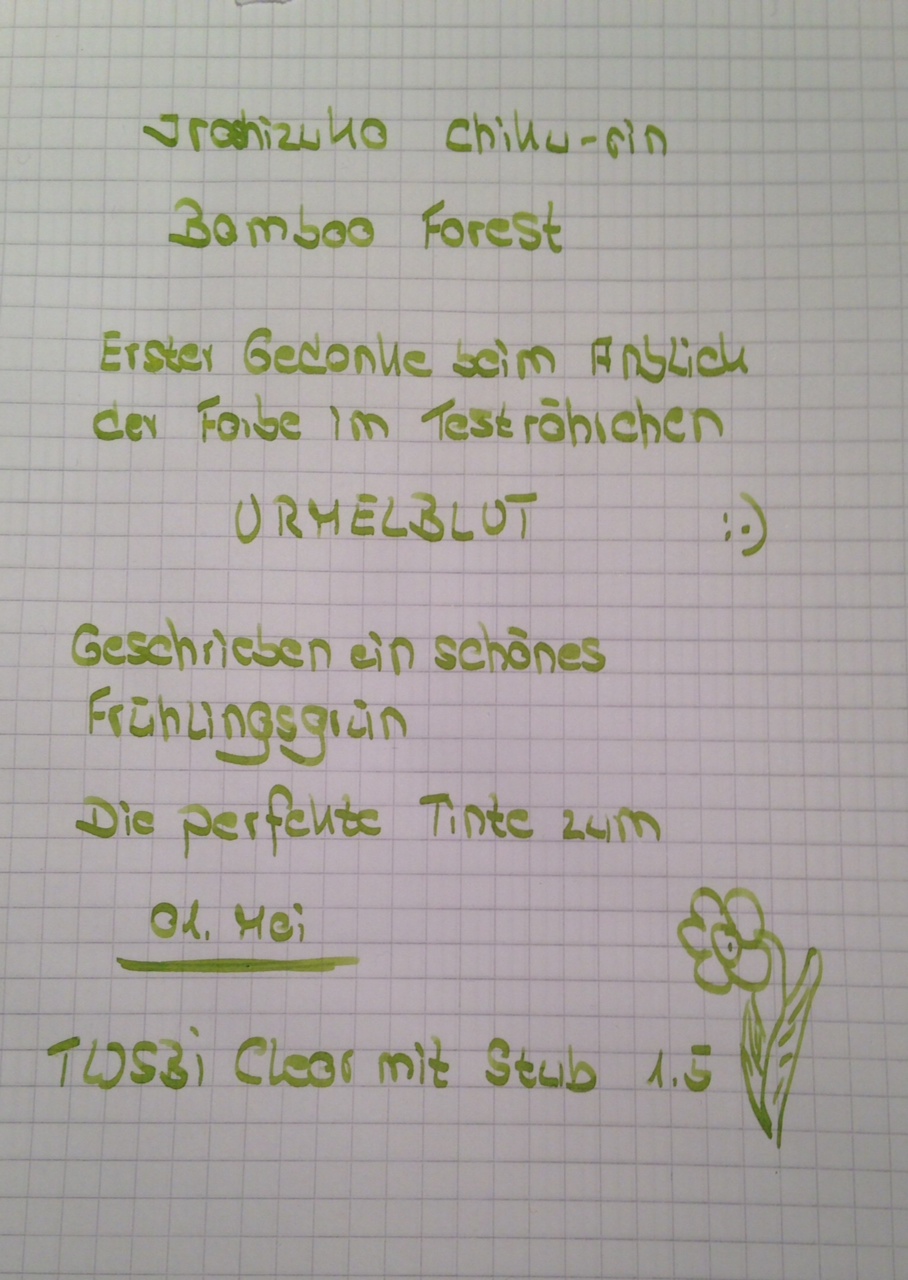 Iroshizuko Chiku-rin
Bamboo Forest
Erster Gedanke beim Anblick
der Farbe im Teströhrchen
URMELBLUT :-)
Geschrieben ein schönes
Frühlingsgrün
Die perfekte Tinte zum
01. Mai
TWSBi Clear mit Stub 1.5